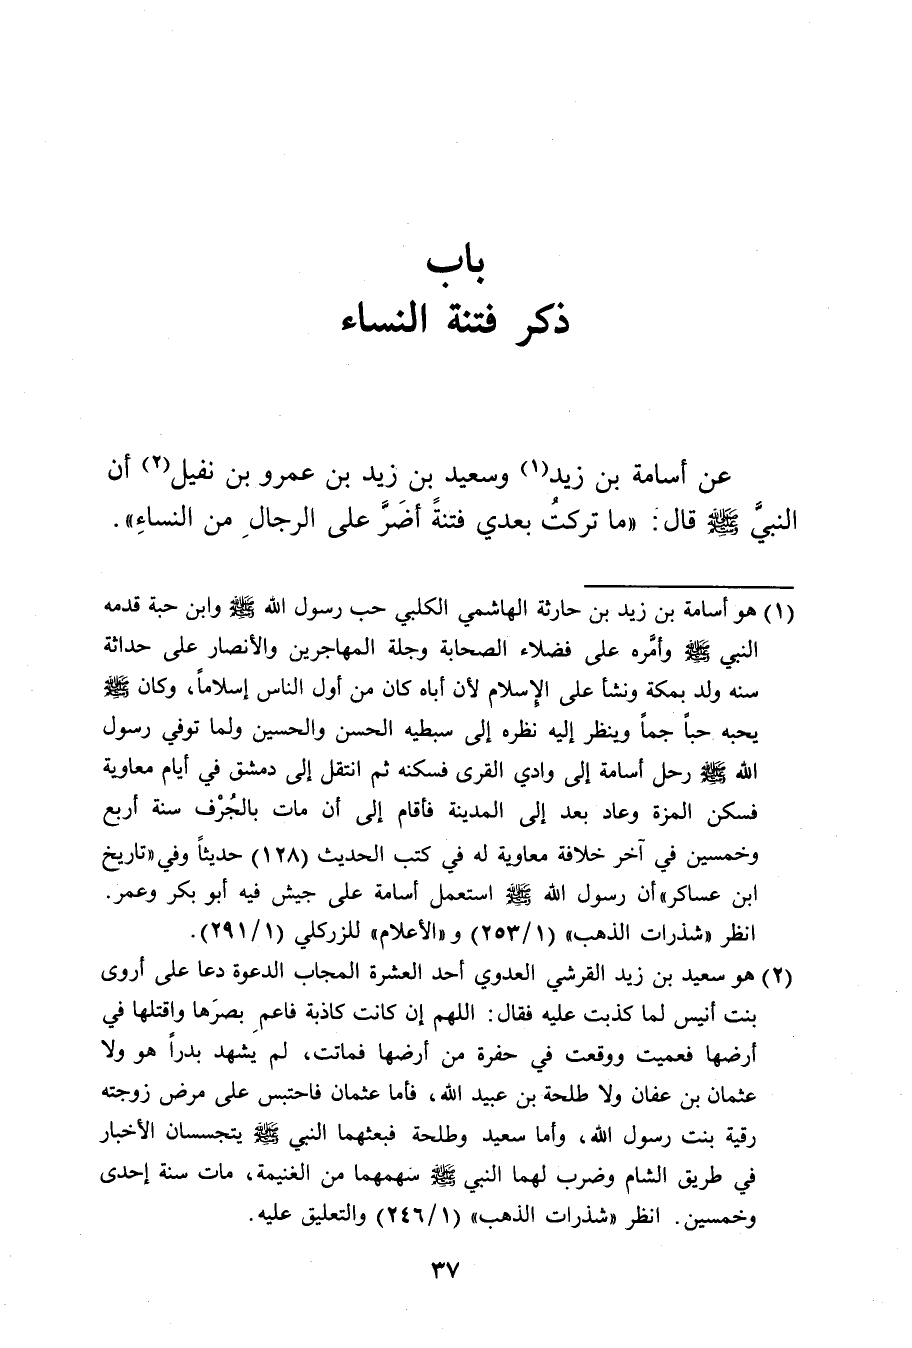 باب
ذكر فتنة النساء
عن أسامة بن زيد(١) وسعيد بن زيد بن عمرو بن نفيل(٢) أن
النبيَّ ﷺ قال: «ما تركتُ بعدي فتنةً أضَرَّ على الرجالِ من النساءِ».
(١) هو أسامة بن زيد بن حارثة الهاشمي الكلبي حب رسول الله ﷺ وابن حبة قدمه
النبي ﷺ وأمَّره على فضلاء الصحابة وجلة المهاجرين والأنصار على حداثة
سنه ولد بمكة ونشأ على الإسلام لأن أباه كان من أول الناس إسلاماً، وكان ﷺ
يحبه حباً جماً وينظر إليه نظره إلى سبطيه الحسن والحسين ولما توفي رسول
الله ﷺ رحل أسامة إلى وادي القرى فسكنه ثم انتقل إلى دمشق في أيام معاوية
فسكن المزة وعاد بعد إلى المدينة فأقام إلى أن مات بالجُرْف سنة أربع
وخمسين في آخر خلافة معاوية له في كتب الحديث (١٢٨) حديثاً وفي «تاريخ
ابن عساكر» أن رسول الله ﷺ استعمل أسامة على جيش فيه أبو بكر وعمر.
انظر «شذرات الذهب» (٢٥٣/١) و«الأعلام» للزركلي (٢٩١/١).
(٢) هو سعيد بن زيد القرشي العدوي أحد العشرة المجاب الدعوة دعا على أروى
بنت أنيس لما كذبت عليه فقال: اللهم إن كانت كاذبة فاعمِ بصرَها واقتلها في
أرضها فعميت ووقعت في حفرة من أرضها فماتت، لم يشهد بدراً هو ولا
عثمان بن عفان ولا طلحة بن عبيد الله، فأما عثمان فاحتبس على مرض زوجته
رقية بنت رسول الله، وأما سعيد وطلحة فبعثهما النبي ﷺ يتجسسان الأخبار
في طريق الشام وضرب لهما النبي ﷺ سهمهما من الغنيمة، مات سنة إحدى
وخمسين. انظر «شذرات الذهب» (٢٤٦/١) والتعليق عليه.
٣٧